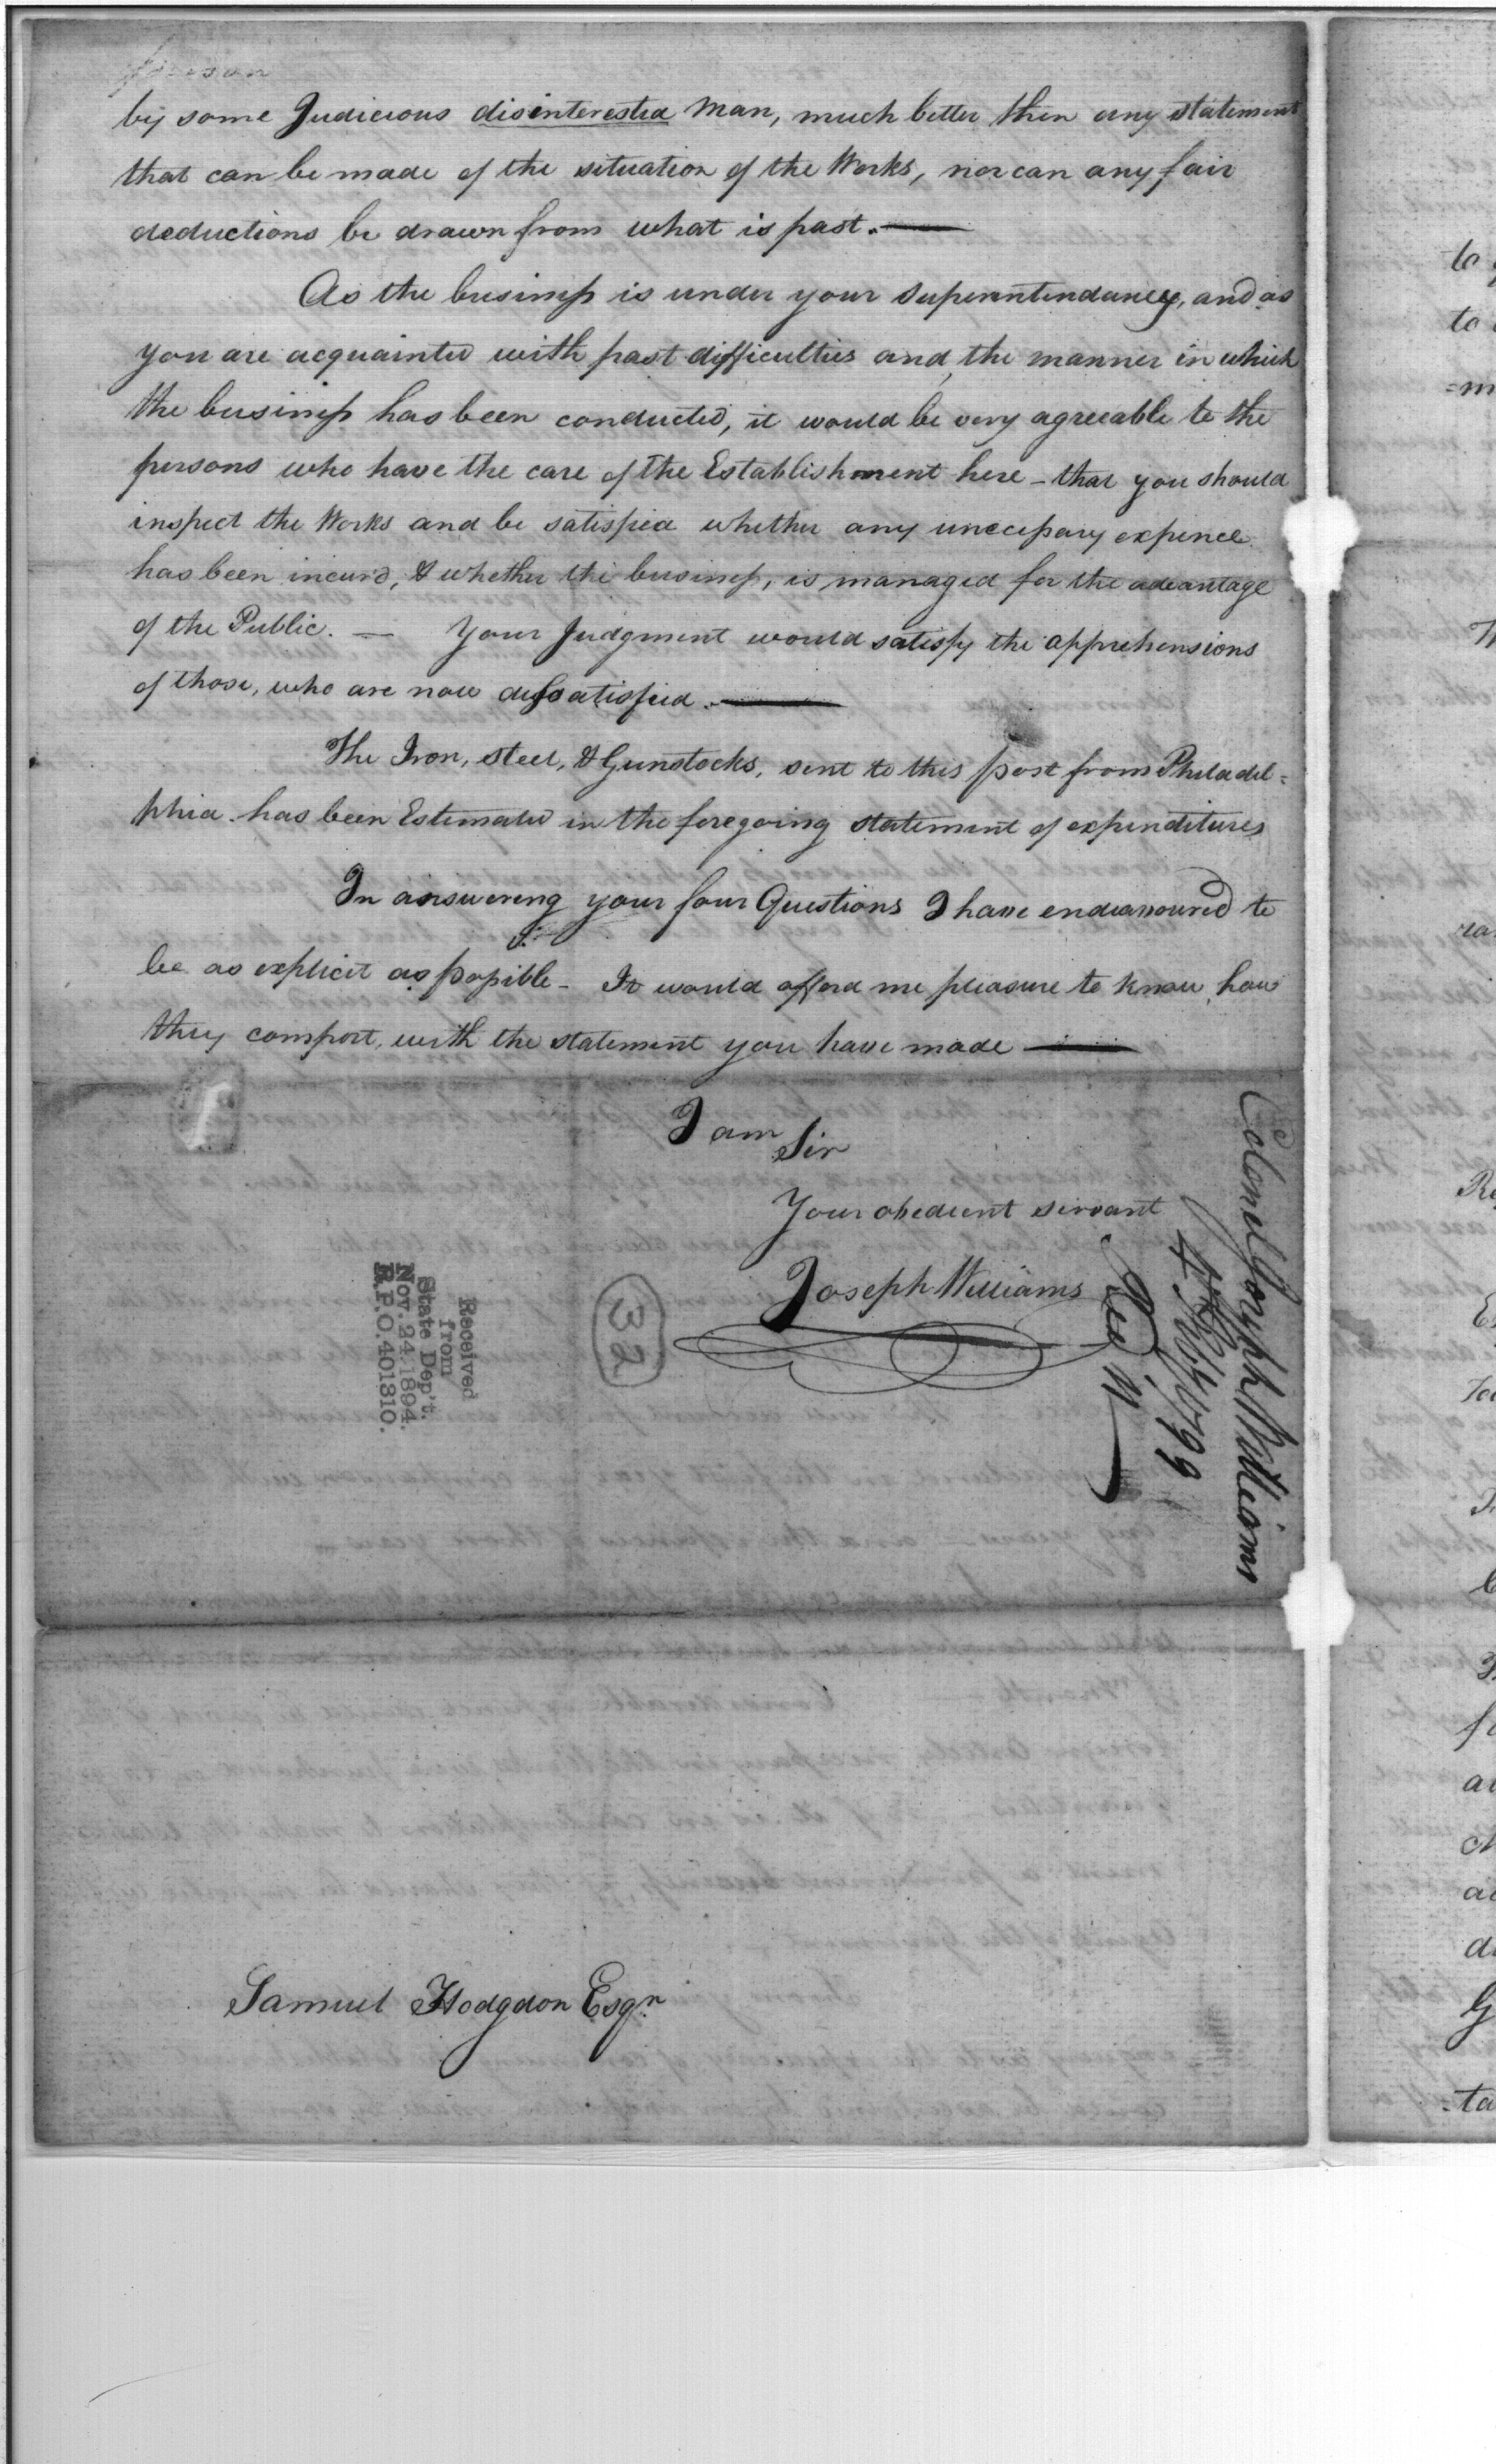 by some Judicious disinterested Man, much better then any statement
that can be made of the situation of the Works, nor can any fair
deductions be drawn from what is past. —
As the business is under your Superintendancy, and as
you are acquainted with past difficulties and, the manner in which
the business has been conducted, it would be very agreeable to the
persons who have the care of the Establishment here - that you should
inspect the Works and be satisfied whether any unecessary expence
has been incurd, & whether the business, is managed for the advantage
of the Public. — Your Judgment would satisfy the apprehensions
of those, who are now dissatisfied. —
The Iron, steel, & Gunstocks, sent to this post from Philadel=
phia. has been Estimated in the foregoing statement of expenditures
In answering your four Questions I have endeavoured to
be as explicit as possible - It would afford me pleasure to know, how
they comport, with the statement you have made —
I am
Sir
Your obedient servant
Joseph Williams
Colonel Joseph Williams
4 Feby 1799
32
Received
from
State Dep't.
Nov. 24. 1894.
R.P.O. 401310.
Samuel Hodgdon Esqr
to
to
=m
ta